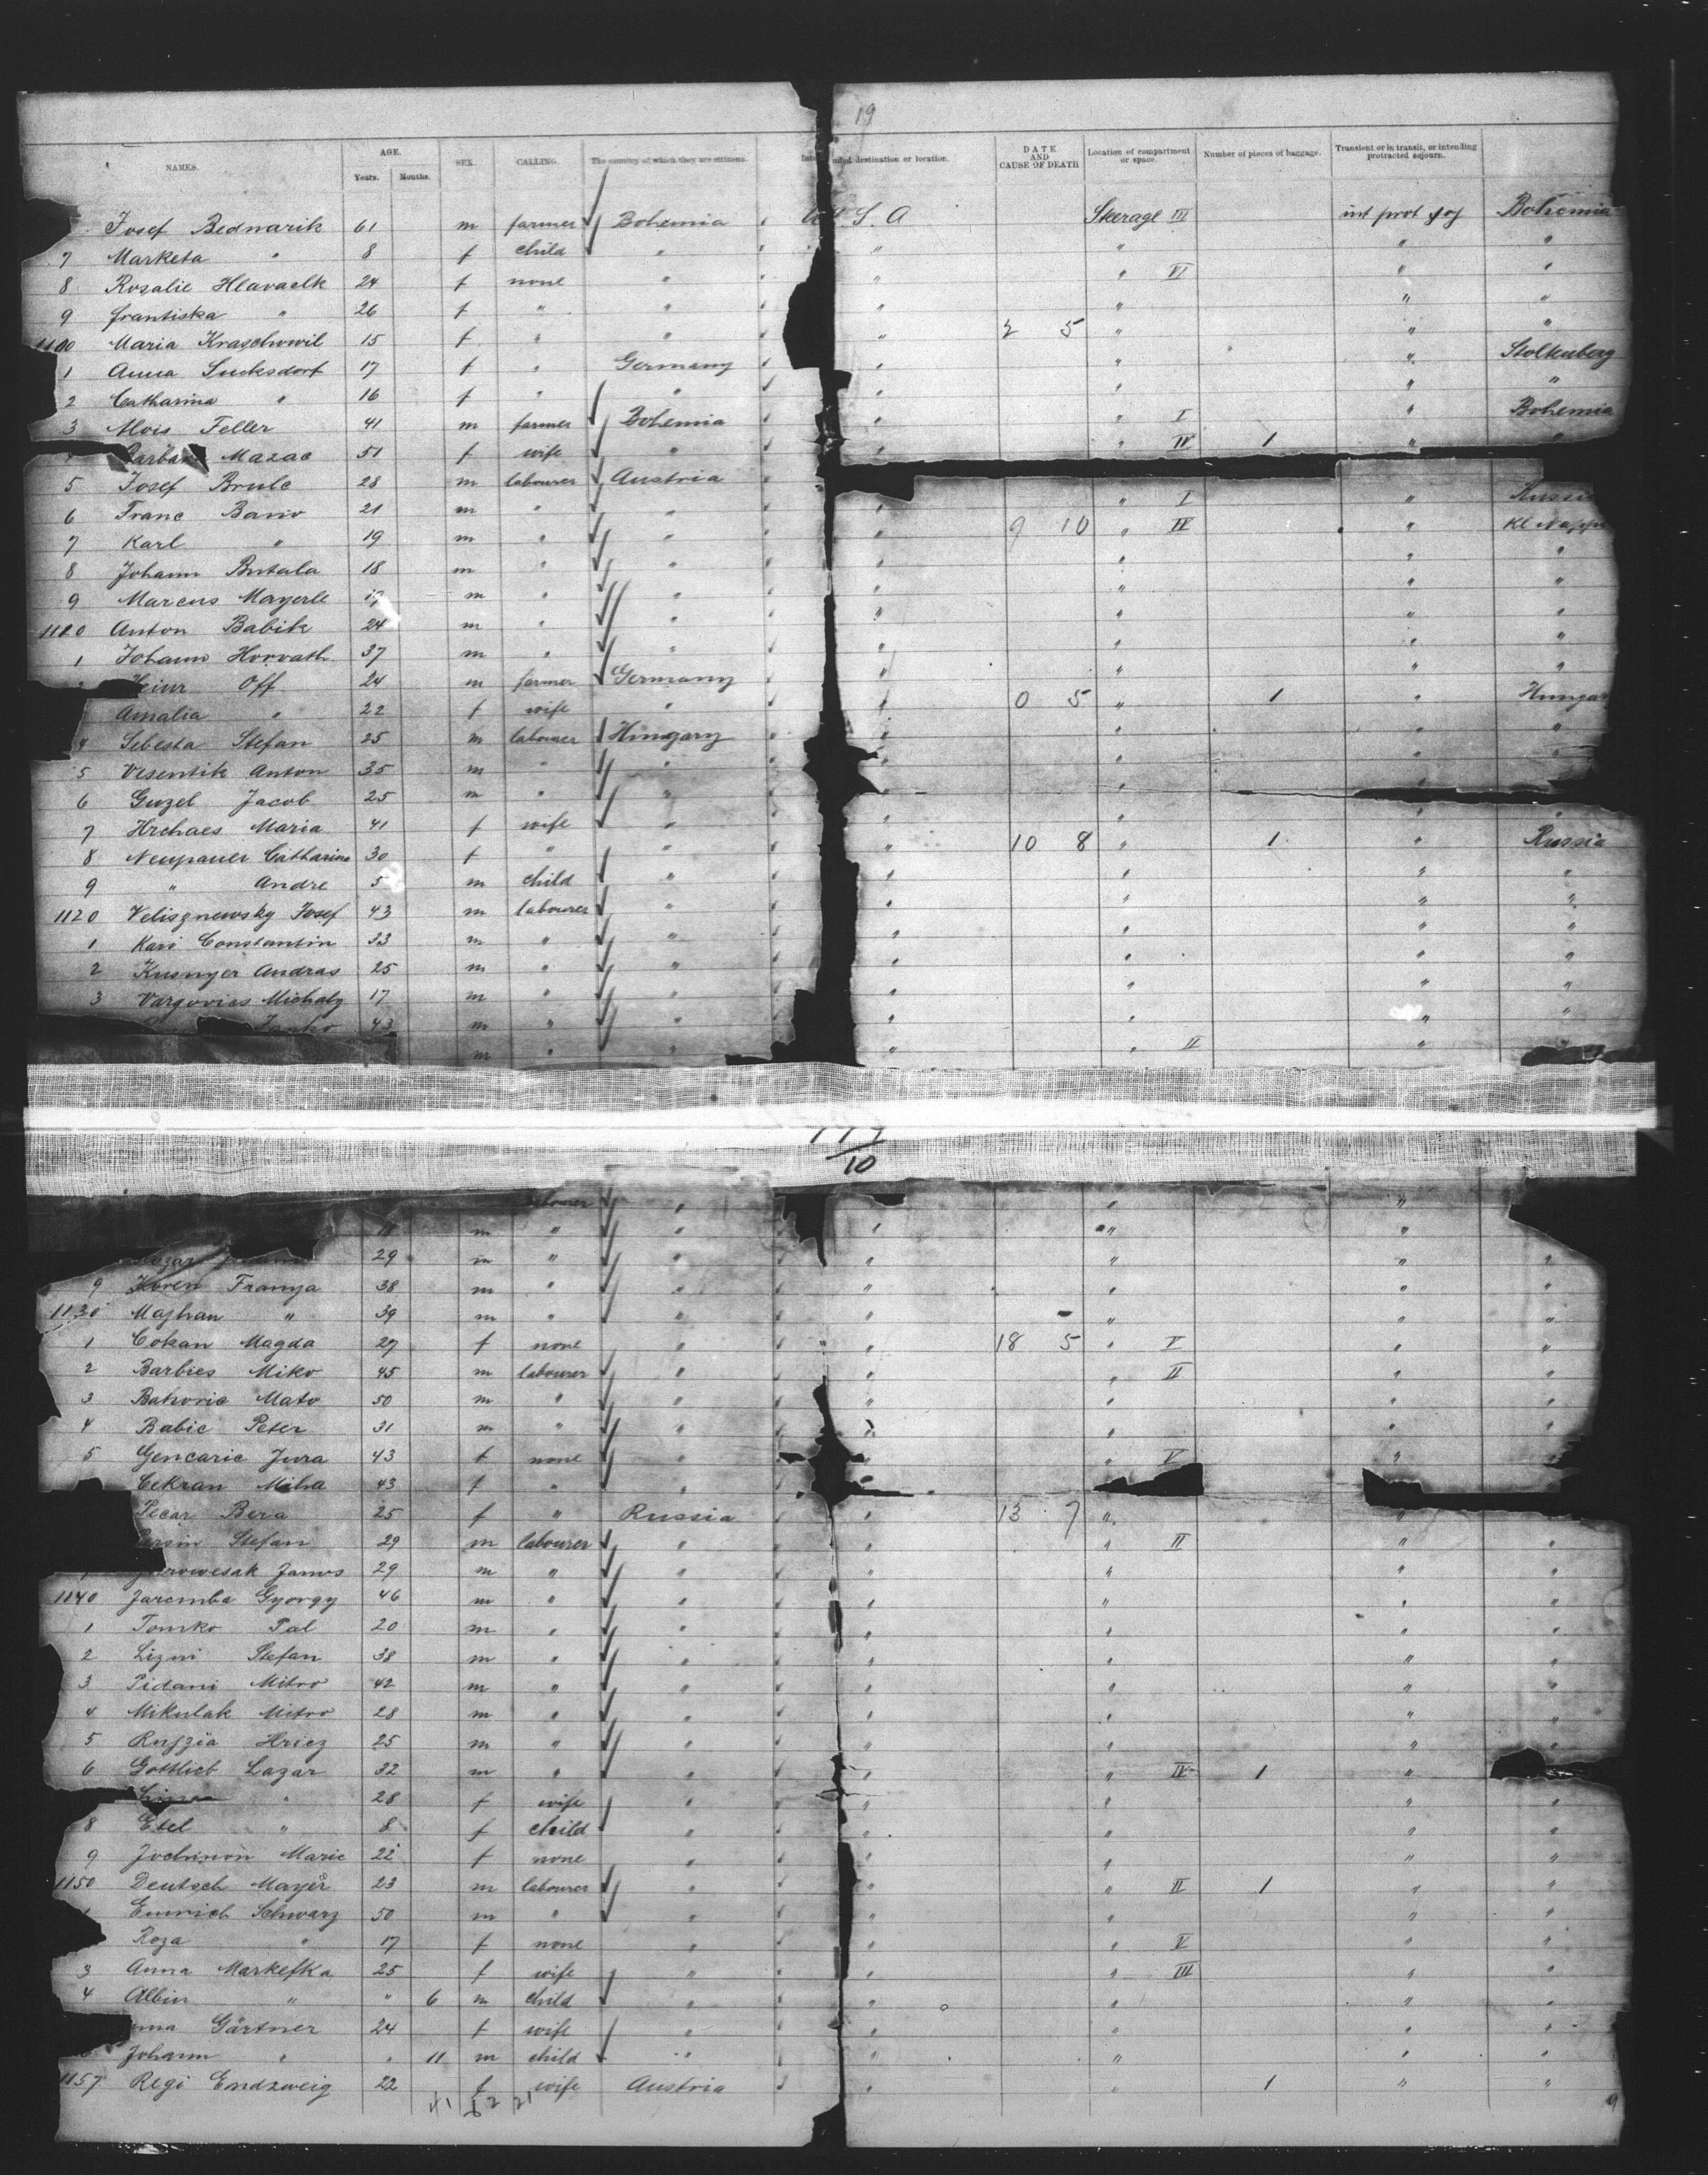 19
NAMES. AGE. Years. Months. SEX. CALLING. The country of which they are citizens. Intended destination or location. DATE AND CAUSE OF DEATH Location of compartment or space. Number of pieces of baggage. Transient or in transit, or intending protracted sojourn.
Josef Bednarik 61 m farmer Bohemia U S. A Steerage III int prot soj Bohemia
7 Marketa " 8 f child " " " " "
8 Rosalie 24 f none " " " VI " "
9 Frantiska " 26 f " " " " " "
1100 Maria Kraschowil 15 f " " " 2 5 " " "
1 Anna Sucksdorf 17 f " Germany " " " Stolkuberg
2 Catharina " 16 f " " " " " "
3 Alois Feller 41 m farmer Bohemia " " I " Bohemia
Barbara Mazac 51 f wife " " " IV 1 " "
5 Josef Brule 28 m labourer Austria " I " Russia
6 Franc 21 m " " " 9 10 " II "
7 Karl " 19 m " " " " " "
8 Johann Butala 18 m " " " " " "
9 Marcus Mayerle 19 m " " " " " "
1110 Anton Babik 24 m " " " " " "
1 Johann Horvath 37 m " " " " " "
Heinr Off 24 m farmer Germany " 0 5 " 1 " Hungar
Amalia " 22 f wife " " " " "
4 Sebesta Stefan 25 m labourer Hungary " " " "
5 Vesentik Anton 35 m " " " " "
6 Guzel Jacob 25 m " " " " " "
7 Hrchaes Maria 41 f wife " " 10 8 " 1 " Russia
8 Neupauer Catharina 30 f " " " " " "
9 " Andre 5 m child " " " " "
1120 Velisznewsky Josef 43 m labourer " " " " "
1 Kari Constantin 33 m " " " " " "
2 Kusnyer Andras 25 m " " " " " "
3 Vargovics Michaly 17 m " " " " " "
Janko 43 m " " " " " "
m " " " " II "
10
labourer " " "
m " " " " "
29 m " " " " " "
9 Horen Franya 38 m " " " " " "
1130 Majhan " 39 m " " " " " "
1 Cokan Magda 27 f none " " 18 5 " V " "
2 Barbies Miko 45 m labourer " " " II " "
3 Bahoric Mato 50 m " " " " " "
4 Babic Peter 31 m " " " " " "
5 Gencaric Jura 43 f none " " " V "
Cekran Miha 43 f " " "
Pecar Bera 25 f " Russia " 13 7 " "
Stefan 29 m labourer " " " II " "
Janos 29 m " " " " " "
1140 Jaremba Gyorgy 46 m " " " " " "
1 Tomko Pal 20 m " " " " " "
2 Lizni Stefan 38 m " " " " " "
3 Pidani Mitro 42 m " " " " " "
4 Mikulak Mitro 28 m " " " " " "
5 Ruszia Hricz 25 m " " " " " "
6 Gottlieb Lazar 32 m " " " " IV 1 "
" 28 f wife " " " " "
8 Etel " 8 f child " " " " "
9 Jochinon Marie 22 f none " " " " "
1150 Deutsch Mayer 23 m labourer " " " II 1 " "
Emrich Schwarz 50 m " " " " " "
Roza " 17 f none " " " V " "
3 Anna Markefka 25 f wife " " " III " "
4 Albin " " 6 m child " " " " "
Gärtner 24 f wife " " " " "
Johann " " 11 m child " " " " "
1157 Regi Endzweig 22 f wife Austria " " 1 " "